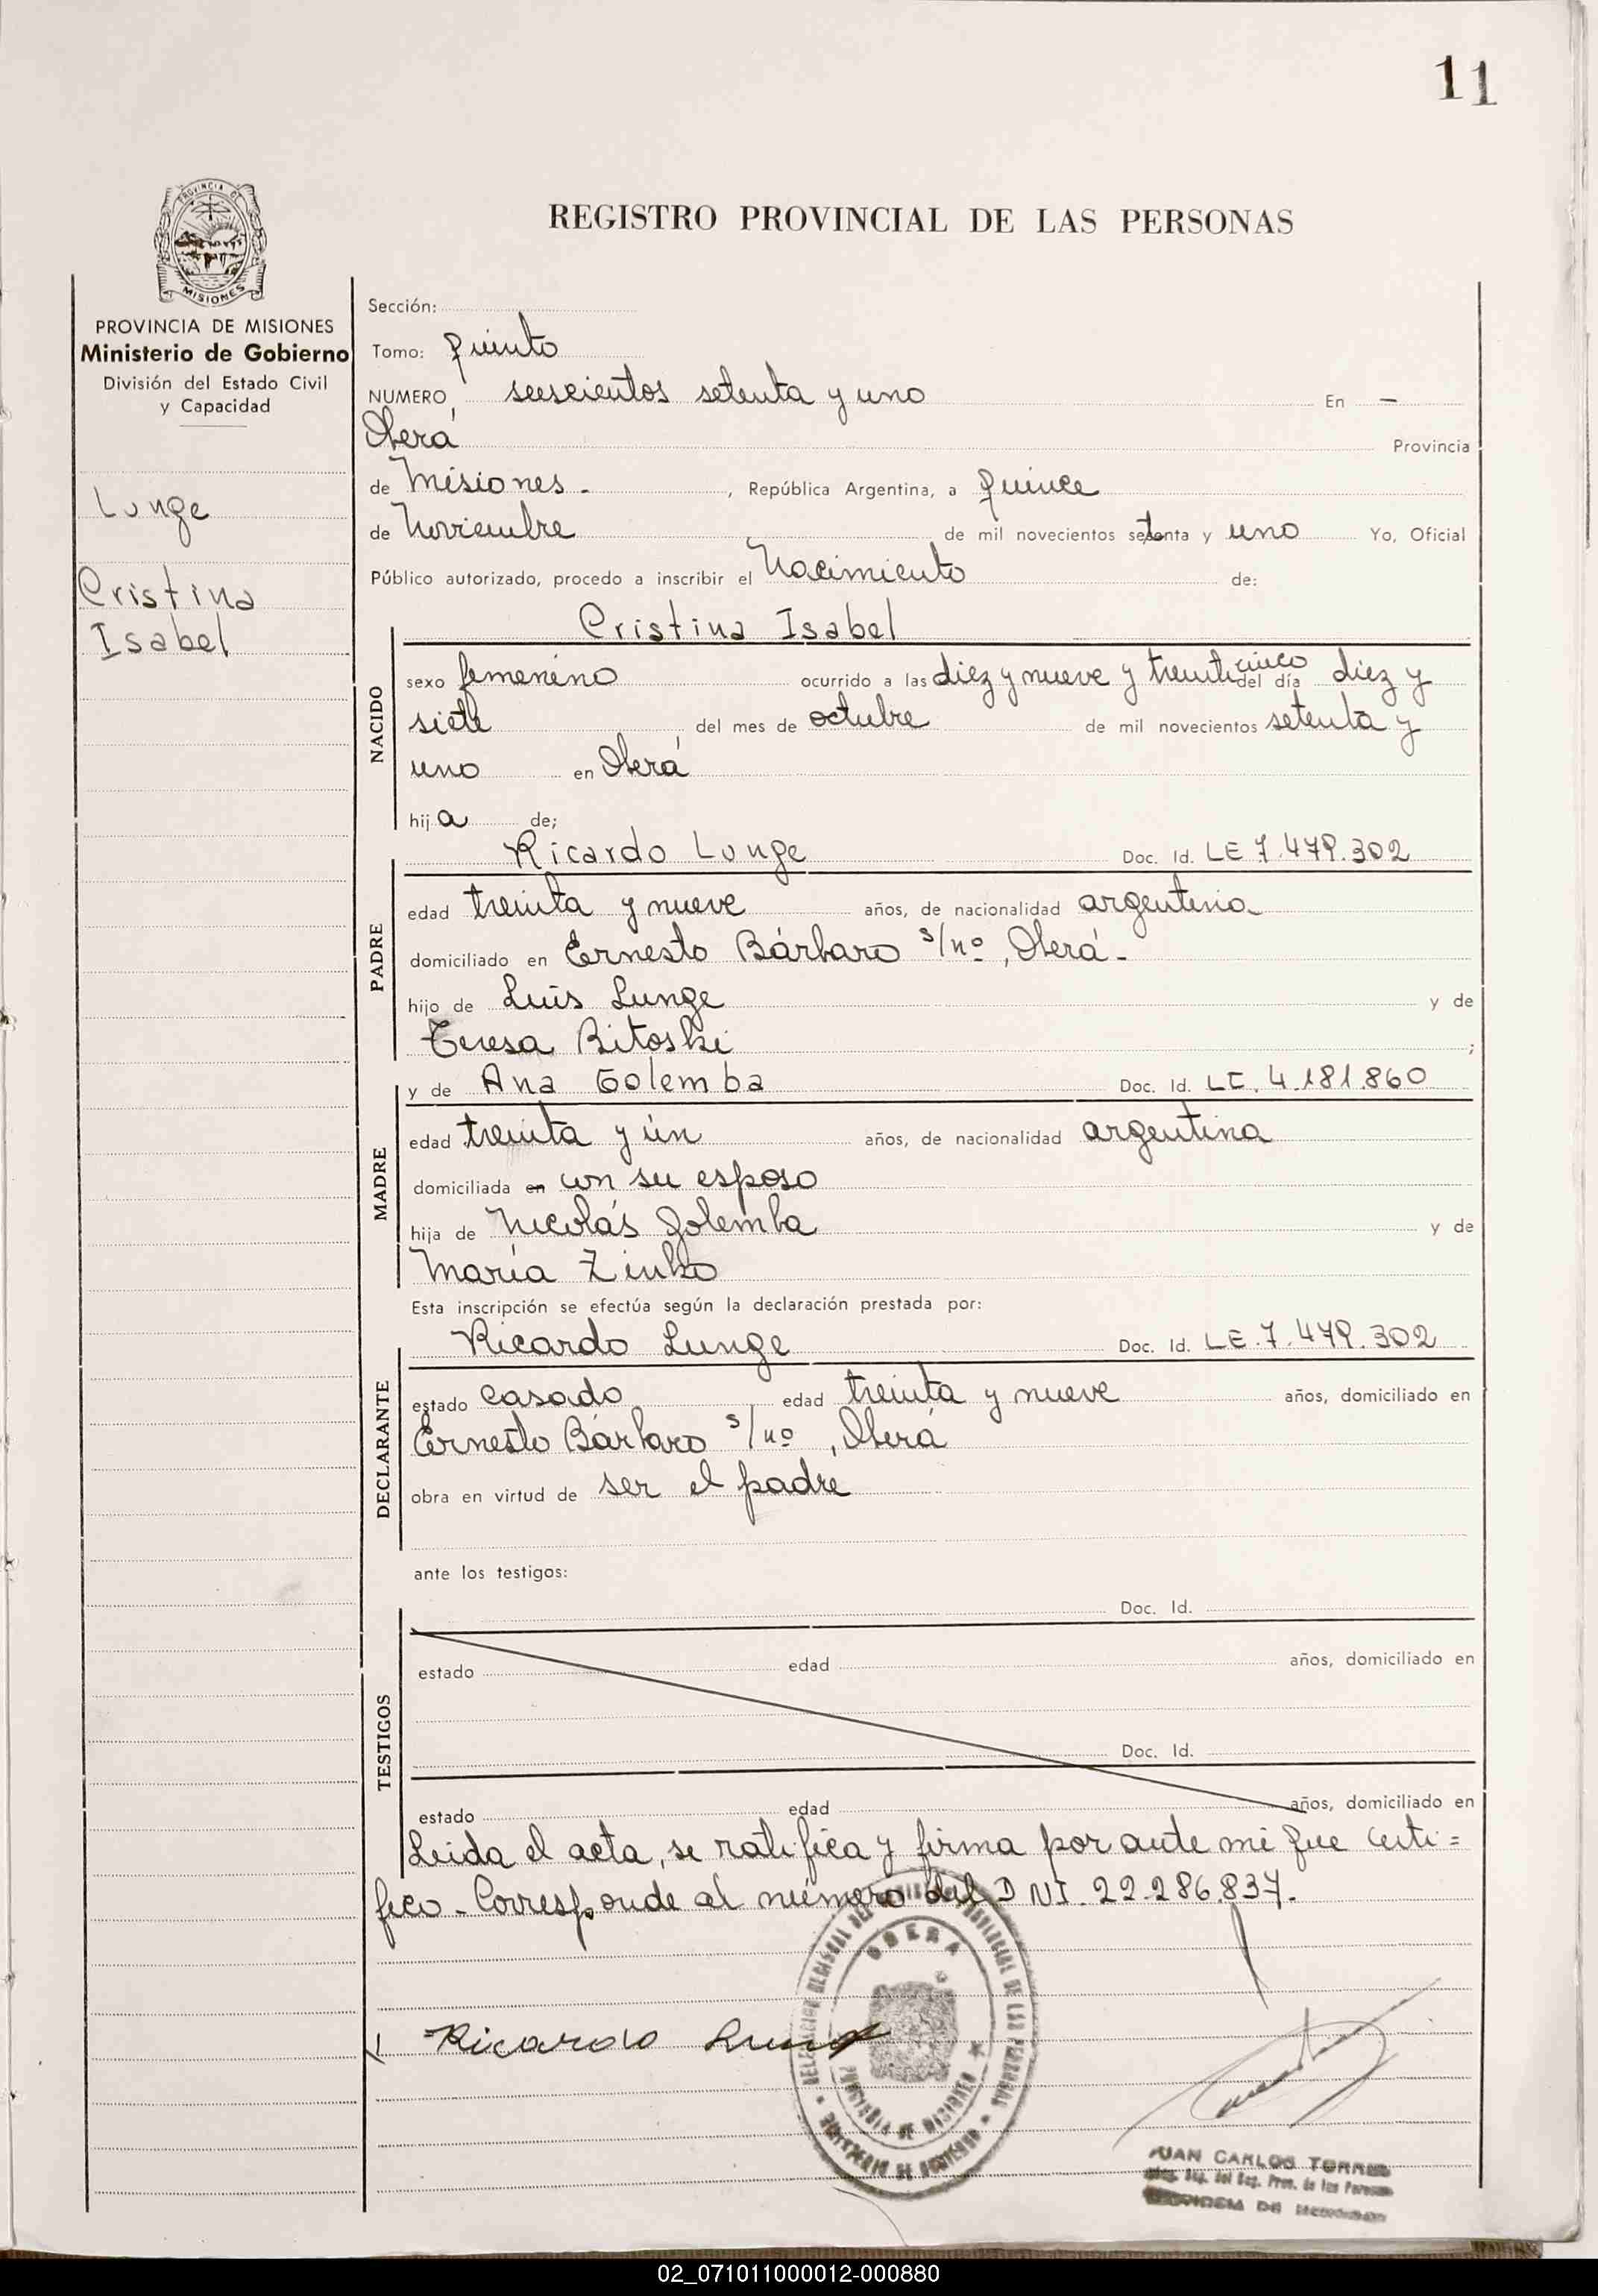 11
PROVINCIA DE
MISIONES
REGISTRO PROVINCIAL DE LAS PERSONAS
PROVINCIA DE MISIONES
Ministerio de Gobierno
División del Estado Civil
y Capacidad
Lunge
Cristina
Isabel
Sección:
Tomo: quinto
NUMERO seiscientos setenta y uno En -
Oberá Provincia
de Misiones - , República Argentina, a quince
de Noviembre de mil novecientos setenta y uno Yo, Oficial
Público autorizado, procedo a inscribir el Nacimiento de:
Cristina Isabel
NACIDO
sexo femenino ocurrido a las diez y nueve y treinticinco del día diez y
siete , del mes de octubre de mil novecientos setenta y
uno en Oberá
hija de;
Ricardo Lunge Doc. Id. LE 7.479.302
PADRE
edad treinta y nueve años, de nacionalidad argentina
domiciliado en Ernesto Bárbaro s/nº, Oberá -
hijo de Luis Lunge y de
Teresa Ritoski ;
y de Ana Golemba Doc. Id. LC. 4.181.860
MADRE
edad treinta y ún años, de nacionalidad argentina
domiciliada en con su esposo
hija de Nicolás Golemba y de
María Zinko
Esta inscripción se efectúa según la declaración prestada por:
Ricardo Lunge Doc. Id. LE. 7.479.302
DECLARANTE
estado casado , edad treinta y nueve años, domiciliado en
Ernesto Bárbaro s/nº, Oberá
obra en virtud de ser el padre
ante los testigos:
Doc. Id.
TESTIGOS
estado edad años, domiciliado en
Doc. Id.
estado edad años, domiciliado en
Leida el acta, se ratifica y firma por ante mi que certi=
fico - Corresponde al número del DNI. 22.286.837.
OBERA
PROVINCIA DE MISIONES
MINISTERIO DE GOBIERNO
Ricardo Lunge
JUAN CARLOS TORRES
Reg. Prov. de las Personas
PROVINCIA DE MISIONES
02_071011000012-000880